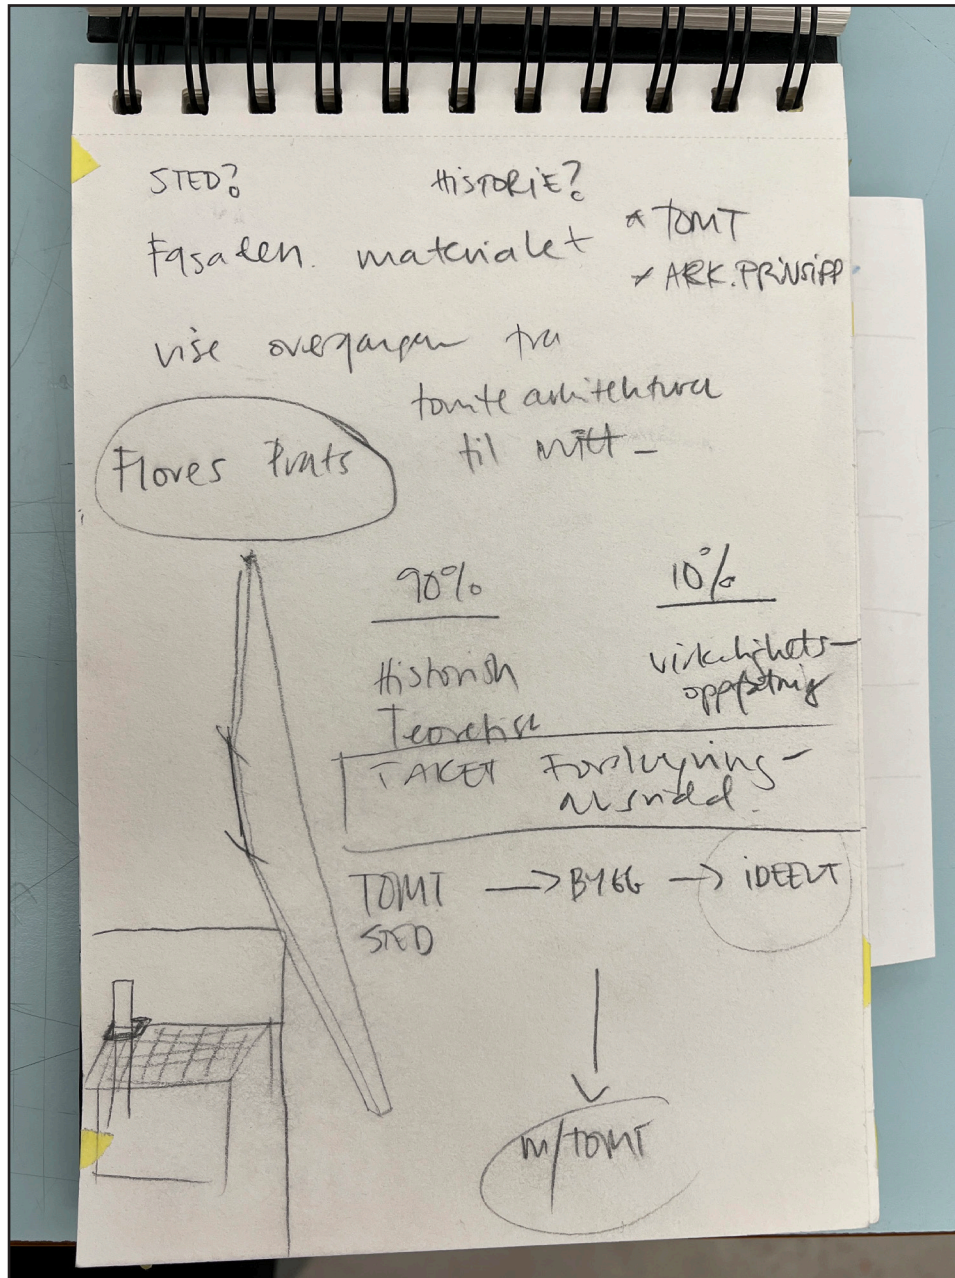 STED? HiSTORiE?
Fasaden. materialet
* TOMT
* ARK.PRiNSiPP
vise overgangen fra
tomte arkitektura
til mitt -
Flores Prats
90% 10%
Historisk
Teoretisk
virkelighets-
oppfatning
TAKET
TOMT → BYGG → iDEELT
STED
m/TOMT